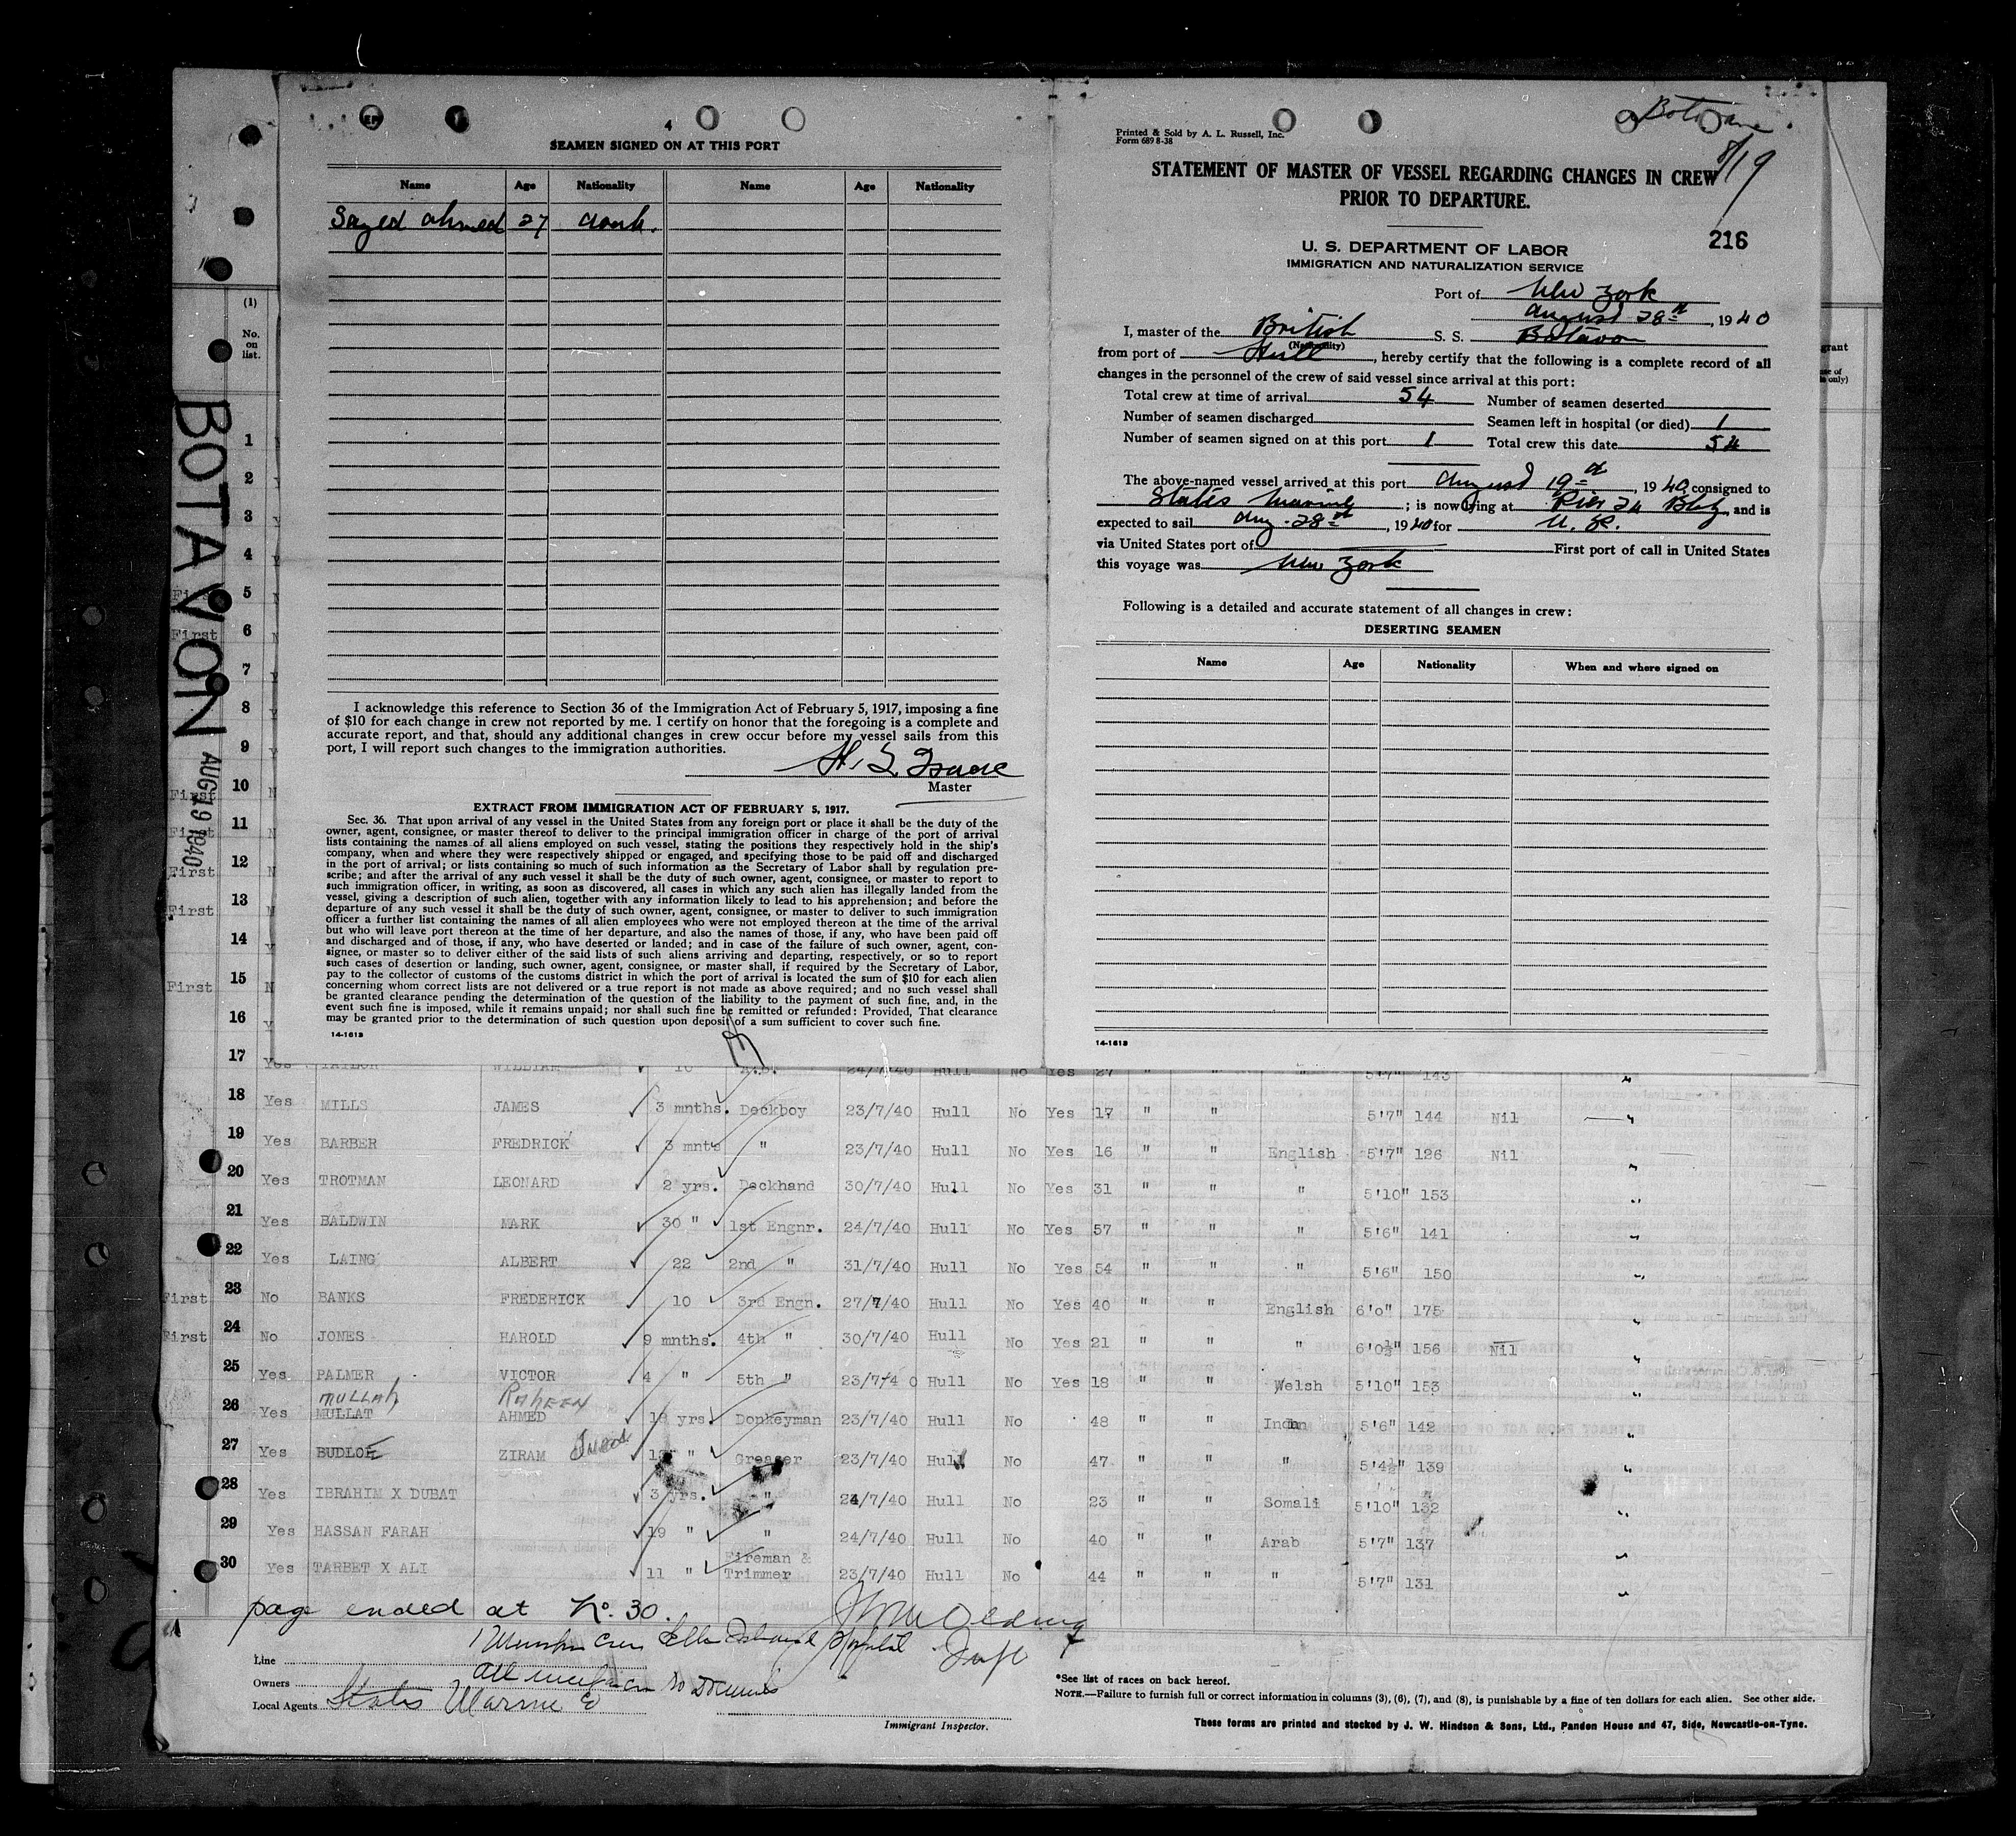 4
SEAMEN SIGNED ON AT THIS PORT
Name Age Nationality Name Age Nationality
Sayed Ahmed 27 Arab.
I acknowledge this reference to Section 36 of the Immigration Act of February 5, 1917, imposing a fine
of $10 for each change in crew not reported by me. I certify on honor that the foregoing is a complete and
accurate report, and that, should any additional changes in crew occur before my vessel sails from this
port, I will report such changes to the immigration authorities.
Master
EXTRACT FROM IMMIGRATION ACT OF FEBRUARY 5, 1917.
Sec. 36. That upon arrival of any vessel in the United States from any foreign port or place it shall be the duty of the
owner, agent, consignee, or master thereof to deliver to the principal immigration officer in charge of the port of arrival
lists containing the names of all aliens employed on such vessel, stating the positions they respectively hold in the ship's
company, when and where they were respectively shipped or engaged, and specifying those to be paid off and discharged
in the port of arrival; or lists containing so much of such information as the Secretary of Labor shall by regulation pre-
scribe; and after the arrival of any such vessel it shall be the duty of such owner, agent, consignee, or master to report to
such immigration officer, in writing, as soon as discovered, all cases in which any such alien has illegally landed from the
vessel, giving a description of such alien, together with any information likely to lead to his apprehension; and before the
departure of any such vessel it shall be the duty of such owner, agent, consignee, or master to deliver to such immigration
officer a further list containing the names of all alien employees who were not employed thereon at the time of the arrival
but who will leave port thereon at the time of her departure, and also the names of those, if any, who have been paid off
and discharged and of those, if any, who have deserted or landed; and in case of the failure of such owner, agent, con-
signee, or master so to deliver either of the said lists of such aliens arriving and departing, respectively, or so to report
such cases of desertion or landing, such owner, agent, consignee, or master shall, if required by the Secretary of Labor,
pay to the collector of customs of the customs district in which the port of arrival is located the sum of $10 for each alien
concerning whom correct lists are not delivered or a true report is not made as above required; and no such vessel shall
be granted clearance pending the determination of the question of the liability to the payment of such fine, and, in the
event such fine is imposed, while it remains unpaid; nor shall such fine be remitted or refunded: Provided, That clearance
may be granted prior to the determination of such question upon deposit of a sum sufficient to cover such fine.
14-1613
8/19
Printed & Sold by A. L. Russell, Inc.
Form 689 8-38
STATEMENT OF MASTER OF VESSEL REGARDING CHANGES IN CREW
PRIOR TO DEPARTURE.
216
U. S. DEPARTMENT OF LABOR
IMMIGRATION AND NATURALIZATION SERVICE
Port of New York
August 28th, 1940
I, master of the British S. S. Botavon
(Nationality)
from port of Hull, hereby certify that the following is a complete record of all
changes in the personnel of the crew of said vessel since arrival at this port:
Total crew at time of arrival 54 Number of seamen deserted
Number of seamen discharged Seamen left in hospital (or died) 1
Number of seamen signed on at this port 1 Total crew this date 54
The above-named vessel arrived at this port August 19th, 1940, consigned to
States Marine; is now lying at Pier 24 Bkly, and is
expected to sail Aug. 28th, 1940 for U. K.
via United States port of First port of call in United States
this voyage was New York
Following is a detailed and accurate statement of all changes in crew:
DESERTING SEAMEN
Name Age Nationality When and where signed on
14-1613
BOTAVON
AUG 19 1940
(1)
No.
on
list.
1
2
3
4
First 5
First 6
7
8
9
First 10
First 11
First 12
First 13
14
First 15
16
17 Yes TAYLOR WILLIAM 10 A.B. 24/7/40 Hull No Yes 27 " " " 5'7" 143
18 Yes MILLS JAMES 3 mnths. Deckboy 23/7/40 Hull No Yes 17 " " 5'7" 144 Nil
19 Yes BARBER FREDRICK 3 mnts " 23/7/40 Hull No Yes 16 " " English 5'7" 126 Nil
20 Yes TROTMAN LEONARD 2 yrs. Deckhand 30/7/40 Hull No Yes 31 " " " 5'10" 153
21 Yes BALDWIN MARK 30 " 1st Engnr. 24/7/40 Hull No Yes 57 " " " 5'6" 141
22 Yes LAING ALBERT 22 2nd " 31/7/40 Hull No Yes 54 " " " 5'6" 150
First 23 No BANKS FREDERICK 10 3rd Engn. 27/7/40 Hull No Yes 40 " " English 6'0" 175
First 24 No JONES HAROLD 9 mnths. 4th " 30/7/40 Hull No Yes 21 " " " 6'0½" 156 Nil
25 Yes PALMER VICTOR 4 " 5th " 23/7/40 Hull No Yes 18 " " Welsh 5'10" 153
MULLAH RAHEEN
26 Yes MULLAT AHMED yrs. Donkeyman 23/7/40 Hull No 48 " " Indian 5'6" 142
27 Yes BUDLOE ZIRAM " Greaser 23/7/40 Hull No 47 " " " 5'4½" 139
28 Yes IBRAHIM X DUBAT 3 yrs. " 24/7/40 Hull No 23 " " Somali 5'10" 132
29 Yes HASSAN FARAH 19 " " 24/7/40 Hull No 40 " " Arab 5'7" 137
30 Yes TARBET X ALI 11 " Fireman & Trimmer 23/7/40 Hull No 44 " " " 5'7" 131
page ended at No. 30.
Line
Owners
Local Agents States Marine Co
Immigrant Inspector.
*See list of races on back hereof.
NOTE.—Failure to furnish full or correct information in columns (3), (6), (7), and (8), is punishable by a fine of ten dollars for each alien. See other side.
These forms are printed and stocked by J. W. Hindson & Sons, Ltd., Pandon House and 47, Side, Newcastle-on-Tyne.